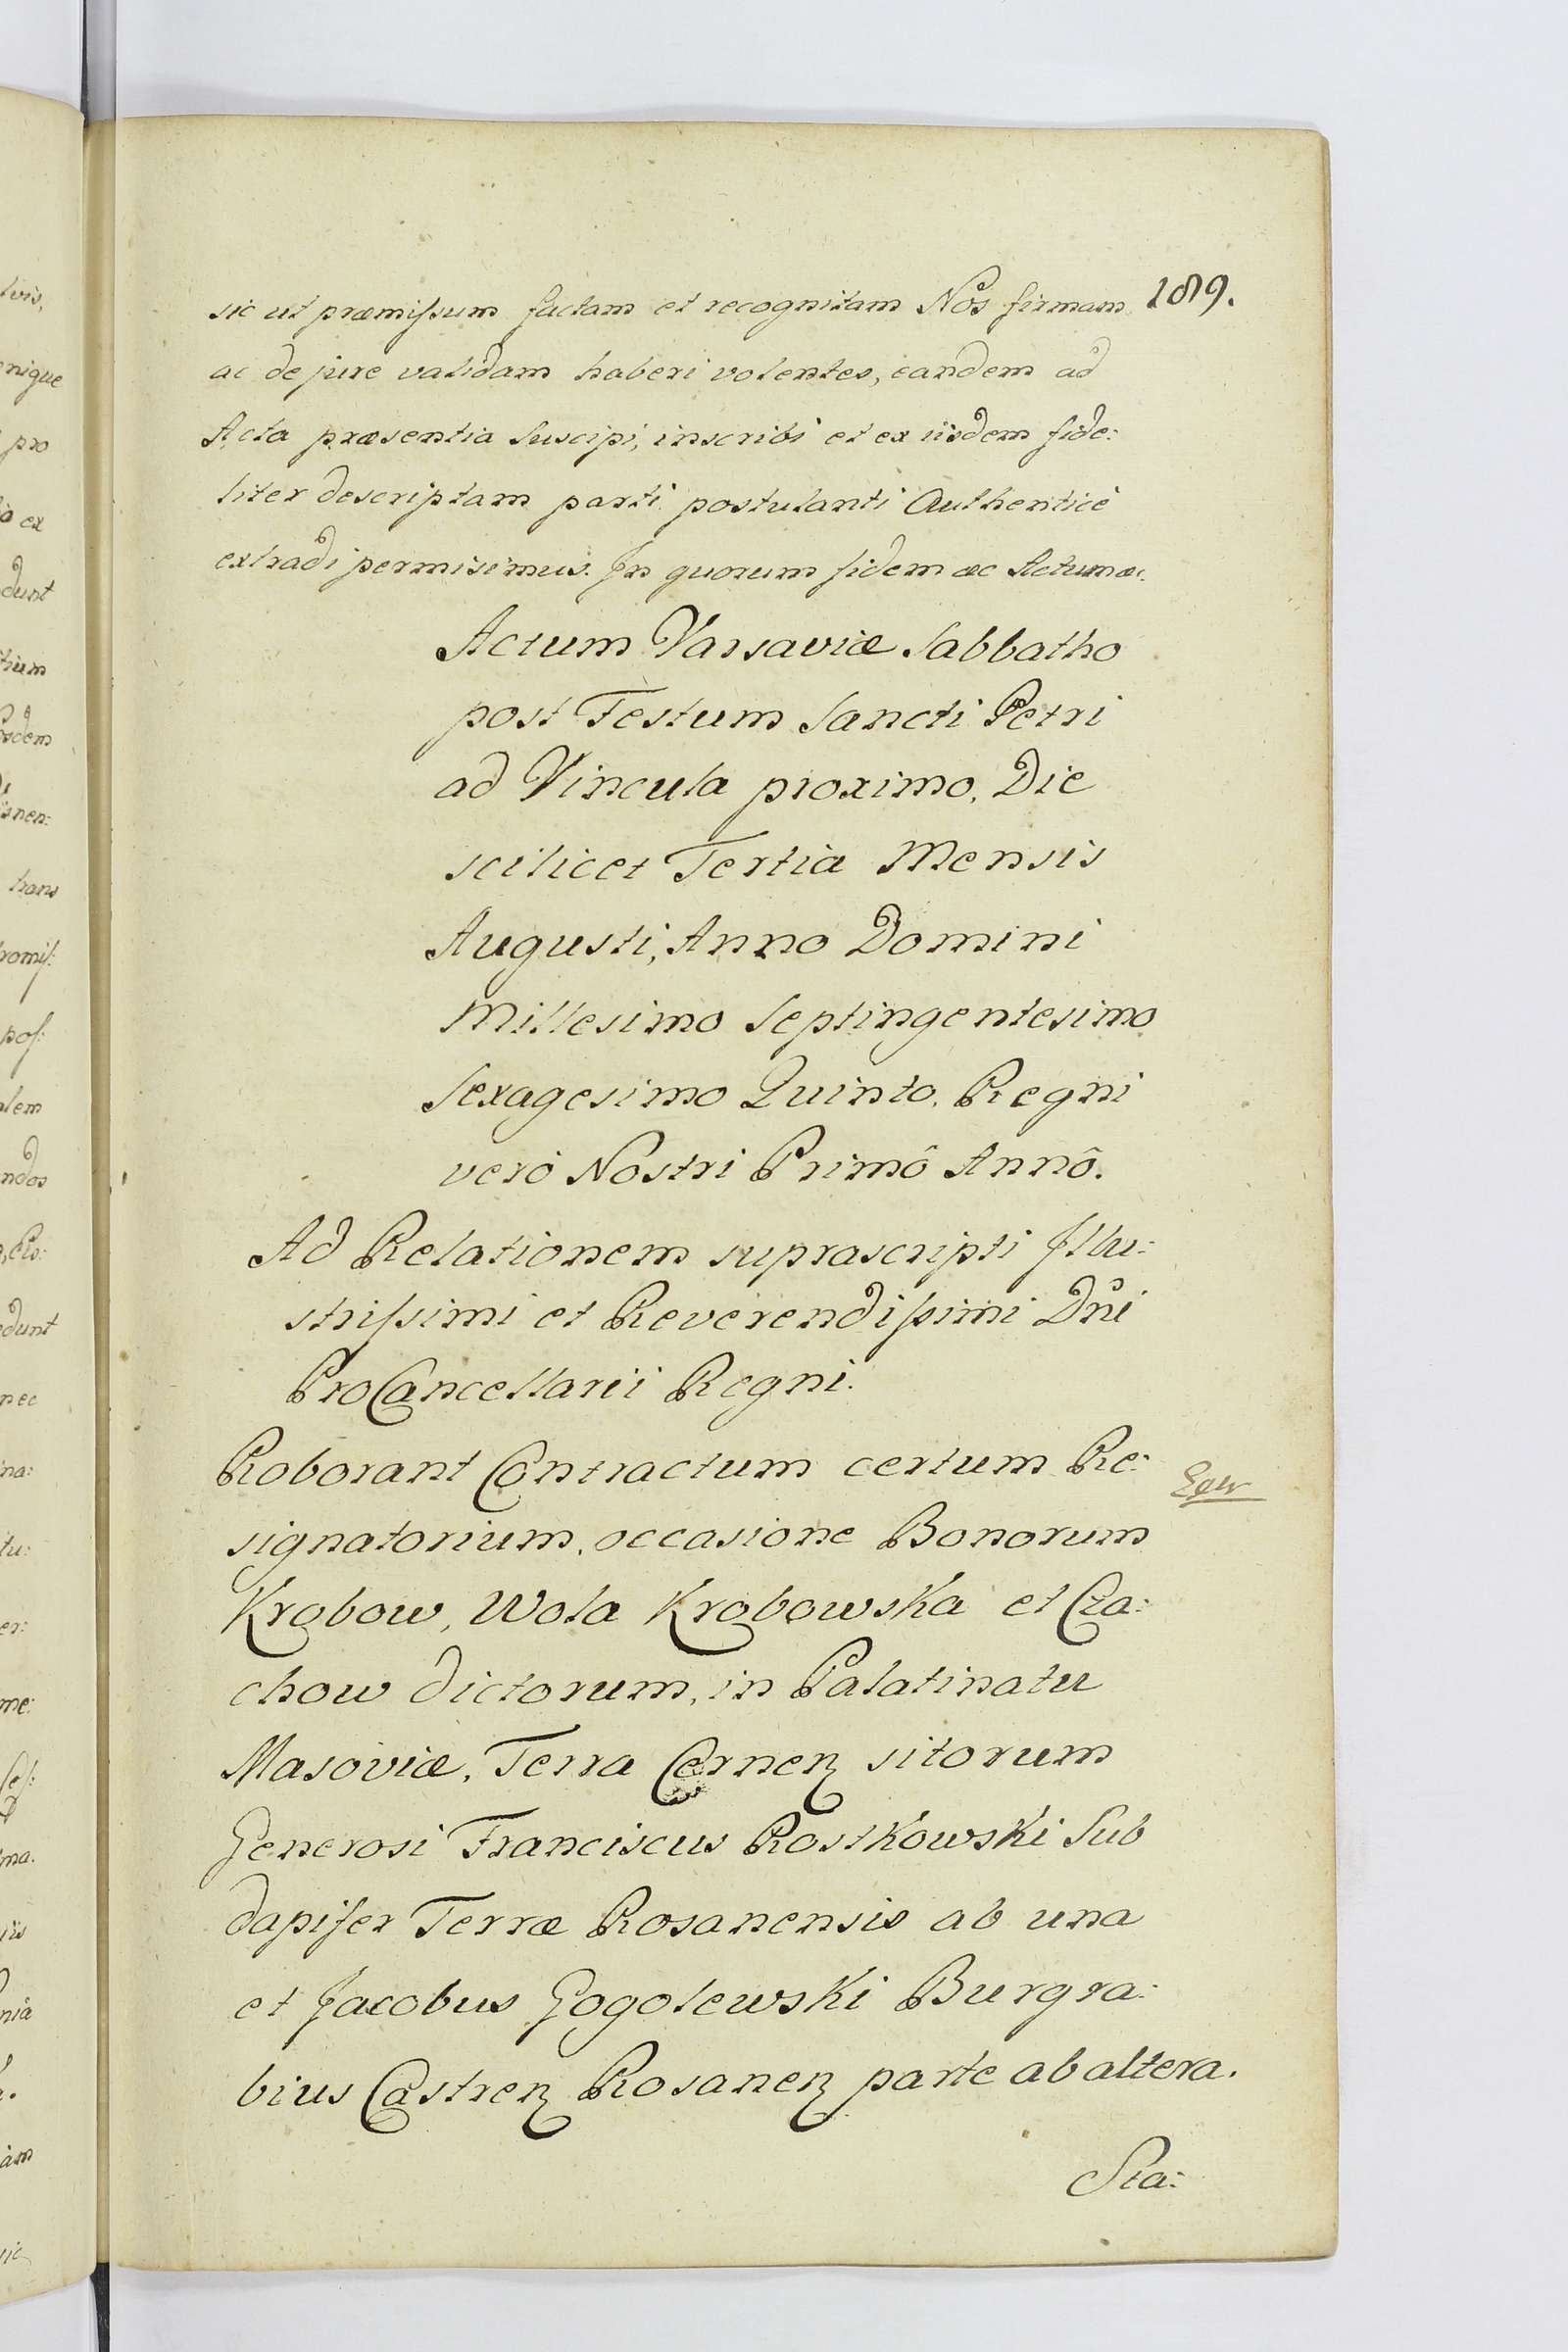 sic ut præmissum factam et recognitam Nos firmam 189.
ac de jure validam haberi volentes, eandem ad
Acta præsentia suscipi, inscribi et ex iisdem fide:
liter descriptam parti postulanti Authenticè
extradi permisimus. In quorum fidem &c Actum &c.
Actum Varsaviæ Sabbatho
post Festum Sancti Petri
ad Vincula proximo, Die
scilicet Tertia Mensis
Augusti, Anno Domini
Millesimo Septingentesimo
Sexagesimo Quinto, Regni
verò Nostri Primô Annô.
Ad Relationem suprascripti Illu:
strissimi et Reverendissimi Dni
ProCancellarii Regni.
Roborant Contractum certum Re:
signatorium, occasione Bonorum
Krobow, Wola Krobowska et Cza:
chow dictorum, in Palatinatu
Masoviæ, Terra Cernen sitorum
Generosi Franciscus Rostkowski Sub
dapifer Terræ Rosanensis ab una
et Jacobus Gogolewski Burgra:
bius Castren Rosanen parte ab altera.
Sta: